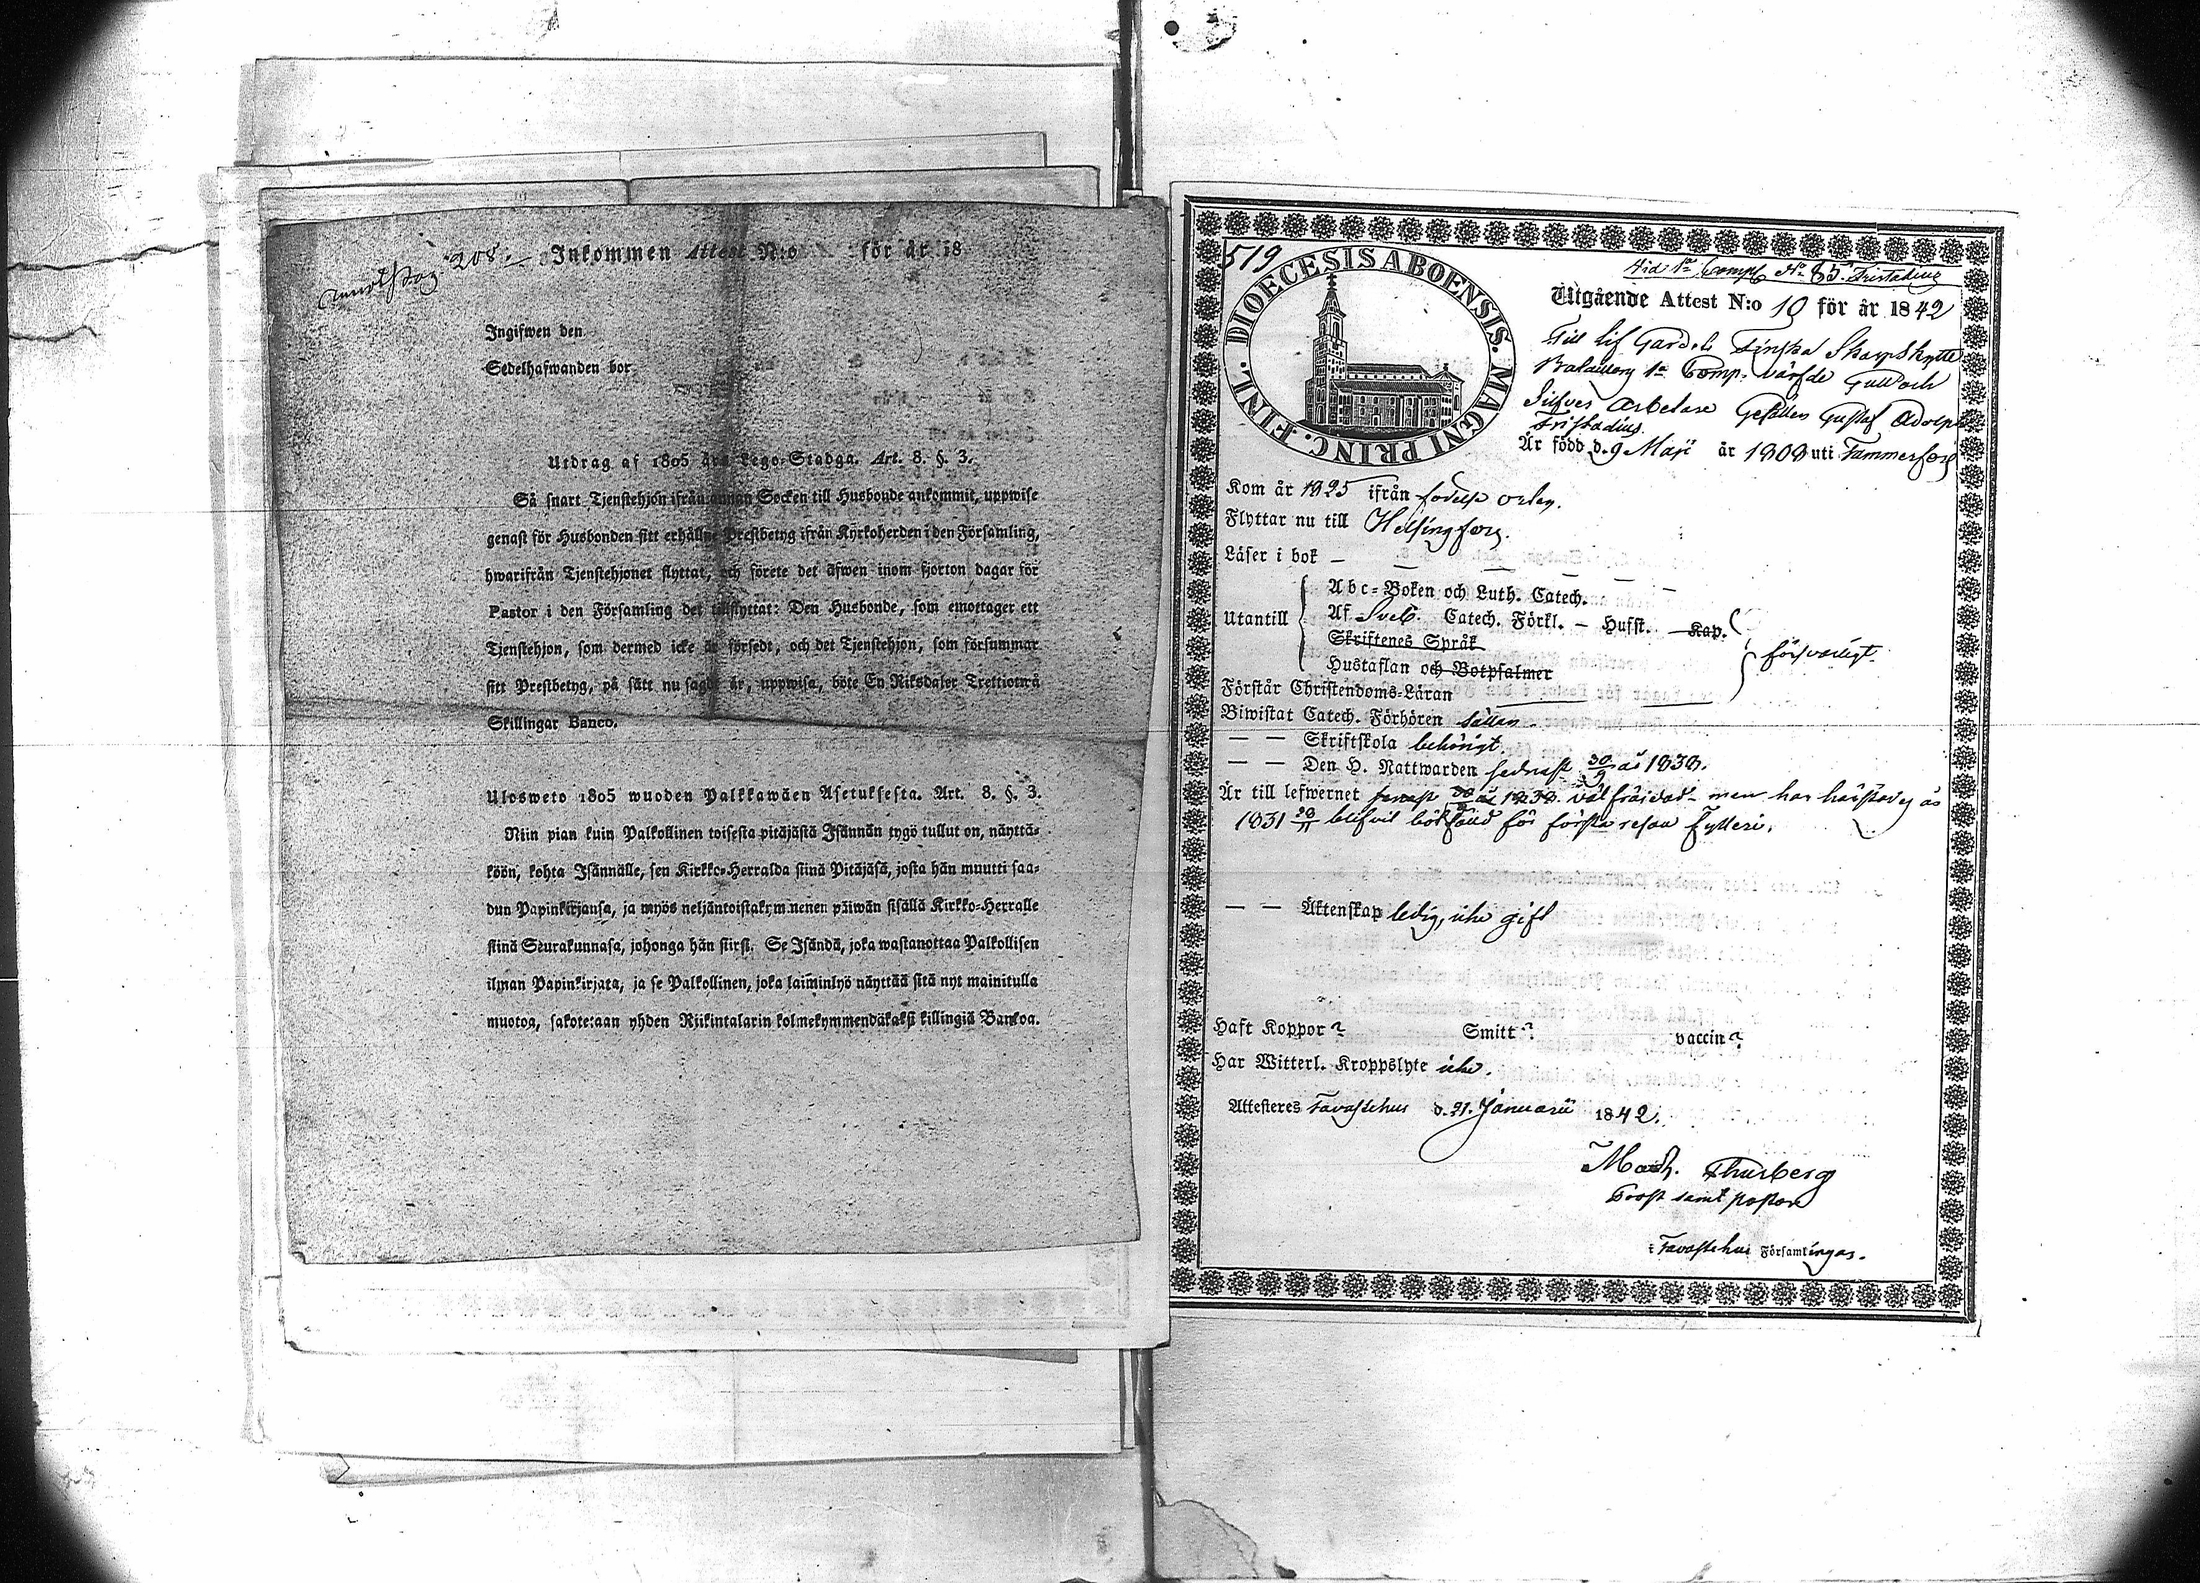 208. Inkommen Attest N:o för år 18
Ingifwen den
Sedelhafwanden bor
Utdrag af 1805 års Lego-Stadga. Art. 8. §. 3.
Så snart Tjenstehjon ifrån annan Socken till Husbonde ankommit, uppwise
genast för Husbonden sitt erhållne Prestbetyg ifrån Kyrkoherden i den Församling,
hwarifrån Tjenstehjonet flyttat, och förete det äfwen inom fjorton dagar för
Pastor i den Församling det tillflyttat: Den Husbonde, som emottager ett
Tjenstehjon, som dermed icke är försedt, och det Tjenstehjon, som försummar
sitt Prestbetyg, på sätt nu sagdt är, uppwisa, böte En Riksdaler Trettiotwå
Skillingar Banco.
Ulosweto 1805 wuoden Palkkawäen Asetuksesta. Art. 8. §. 3.
Niin pian kuin Palkollinen toisesta pitäjästä Isännän tygö tullut on, näyttä-
köön, kohta Isännälle, sen Kirkko-Herralda siinä Pitäjäsä, josta hän muutti saa-
dun Papinkirjansa, ja myös neljäntoistakymmenen päiwän sisällä Kirkko-Herralle
siinä Seurakunnasa, johonga hän siirsi. Se Isändä, joka wastanottaa Palkollisen
ilman Papinkirjata, ja se Palkollinen, joka laiminlyö näyttää sitä nyt mainitulla
muotoa, sakotetaan yhden Riikintalarin kolmekymmendäkaksi killingiä Bankoa.
519
DIOECESIS ABOENSIS. MAGNI PRINC. FINL.
Comp. No 85. Tristadius
Utgående Attest N:o 10 för år 1842
Till Lif Gardets Finska Skarpskytte
Bataillon 1a Comp. värfde Guld och
Silfver Arbetare Gesällen Gustaf Adolph
Tristadius.
Är född d. 9 Maji år 1808 uti Tammerfors
Kom år 1825 ifrån födelse orten.
Flyttar nu till Helsingfors.
Läser i bok —
Utantill
Abc-Boken och Luth. Catech.
Af Sveb. Catech. Förkl. — Husst. — Kap.
Skriftenes Språk
Hustaflan och Botpsalmer
försvarligt.
Förstår Christendoms-Läran
Biwistat Catech. Förhören sällan
— — Skriftskola behörigt.
— — Den H. Nattwarden sednast 30/9 år 1838.
Är till lefwernet välfräjdad men har härstädes år
1831 28/11 blifvit bötfälld för första resan fylleri.
— — Äktenskap ledig, icke gift
Haft Koppor? Smitt? vaccin?
Har Witterl. Kroppslyte icke.
Attesteras Tavastehus d. 31. Januarii 1842.
Mach. Thurberg
Prost samt pastor
i Tavastehus Församlingar.